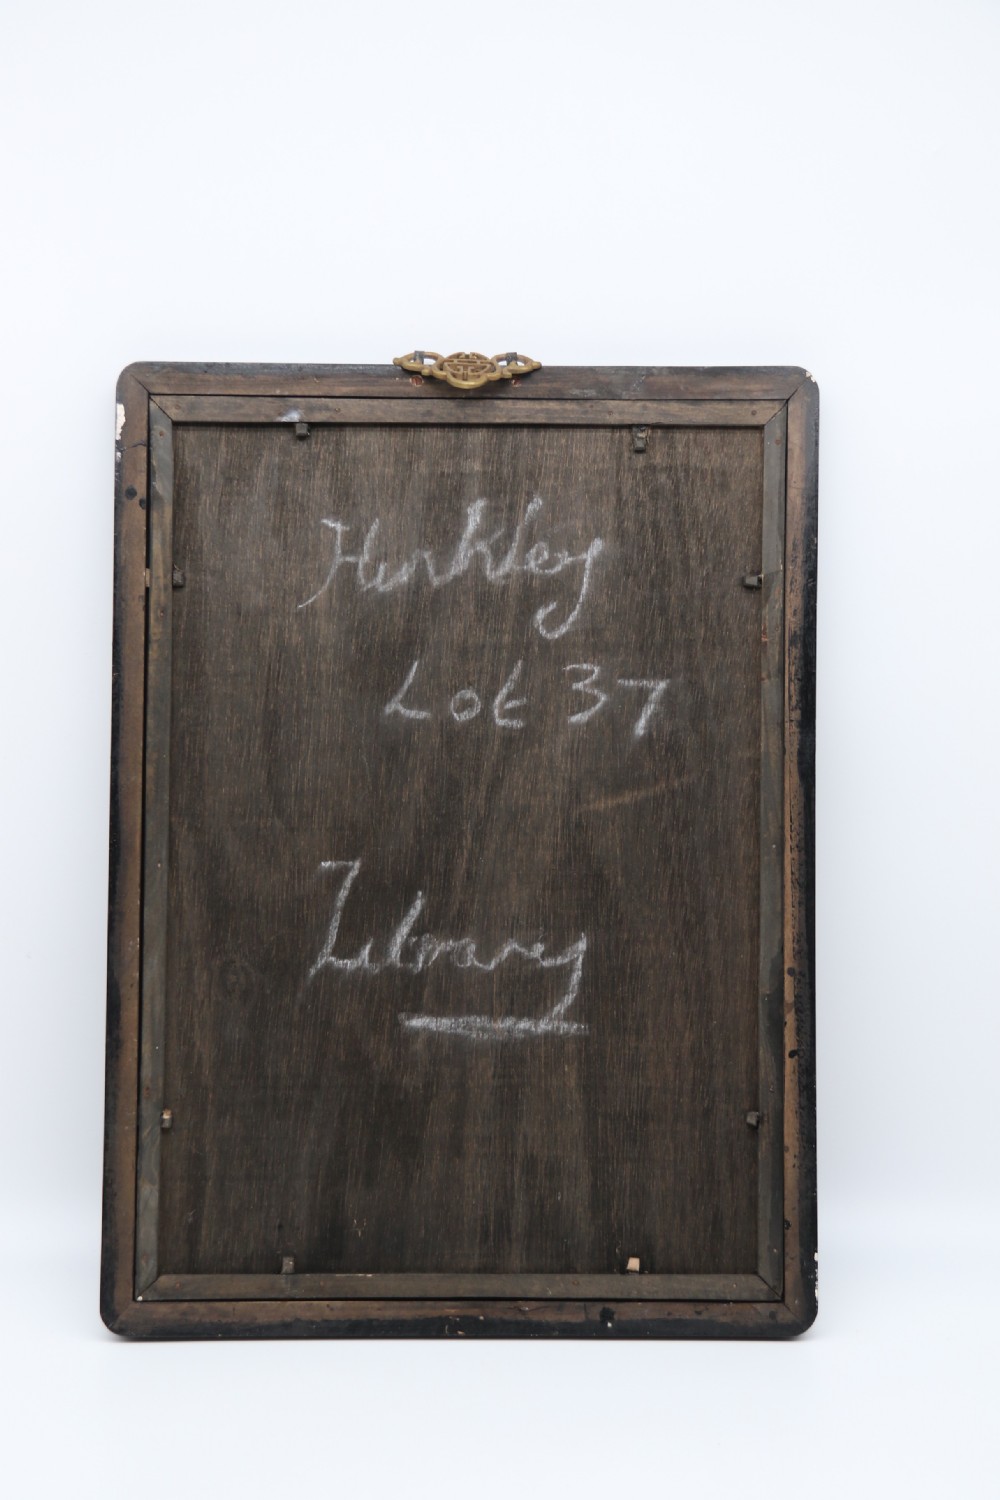 Hurkley
Lot 37
Library